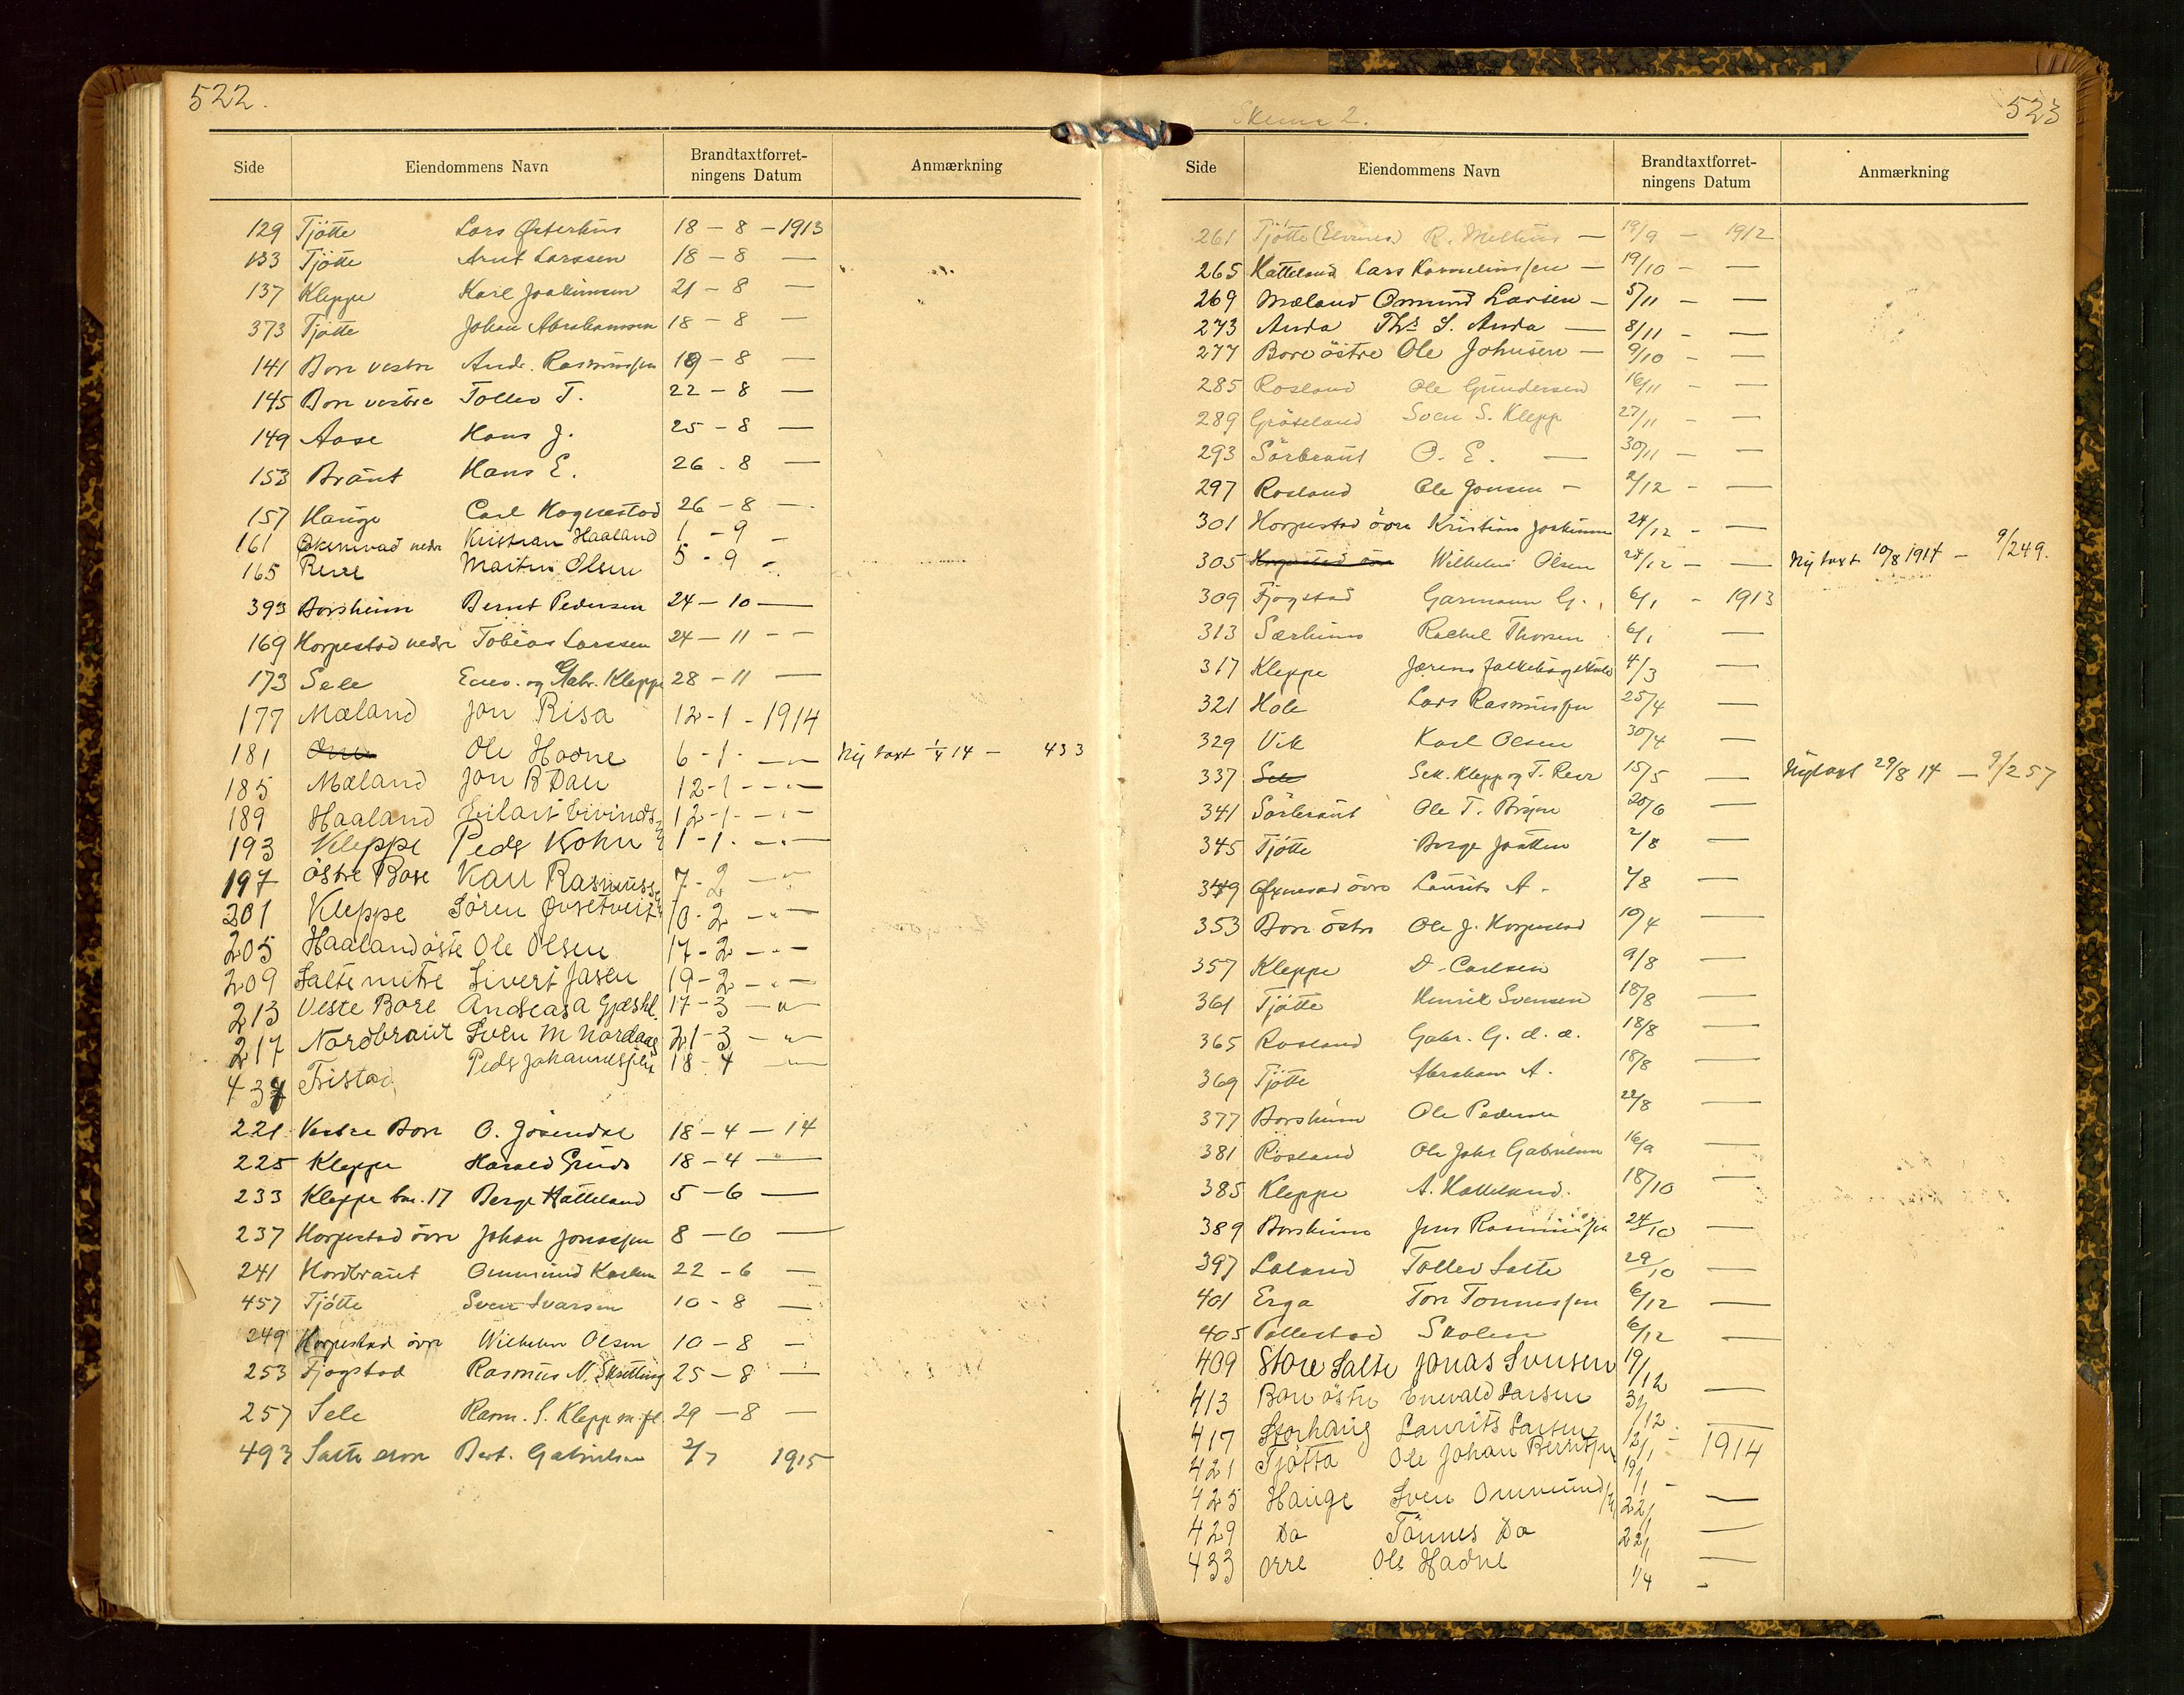 522.
Side Eiendommens Navn Brandtaxtforret-
ningens Datum Anmærkning
129 Tjötte Lars Østerhus 18 – 8 – 1913
133 Tjötte Arnt Larssen 18 – 8 —
137 Kleppe Karl Joakimsen 21 – 8 —
373 Tjötte Johan Abrahamsen 18 – 8 —
141 Bore vestre Andr. Rasmussen 19 – 8 —
145 Bore vestre Tollev T. 22 – 8 —
149 Aase Hans J. 25 – 8 —
153 Braut Hans E. 26 . 8 —
157 Hauge Carl Hognestad 26 – 8 —
161 nedre Kristian Haaland 1 – 9 –
165 Reve Martin Olsen 5 – 9 –
393 Borsheim Bernt Pedersen 24 – 10 —
169 Horpestad nedre Tobias Larssen 24 – 11 – –
173 Sele Enev. og Gabr. Kleppe 28 – 11 —
177 Mæland Jon Risa 12 - 1 - 1914
181 Orre Ole Hadne 6 - 1 - — Ny taxt 1/4 14 — 433
185 Mæland Jon B Dau 12 - 1 - —
189 Haaland Eilart Eivinds 12 - 1 - —
193 Kleppe Peds Kohn 1 - 1 . —
197 östre Bore Karl Rasmuss 7 - 2 —
201 Kleppe Sören 10 - 2 —
205 Haaland öste Ole Olsen 17 - 2 —
209 Salte mitre Sivert Jasen 19 - 2 —
213 Veste Bore Andreas A Gjeshl. 17 - 3 — " —
217 Nordbraut Sven M Nordaas 21 - 3 — " —
437 Fristad Peds Johannessen 18 - 4 —
221 Vestre Bore O. Jösendal 18 – 4 – 14
225 Kleppe Harald Grude 18 – 4 —
233 Kleppe bn. 17 Berge Hatteland 5 – 6 —
237 Horpestad övre Johan Jonassen 8 – 6 —
241 Nordbraut Ommund Karlsen 22 – 6 —
457 Tjötte Sven Ivarsen 10 – 8 —
249 Horpestad övre Wilhelm Olsen 10 – 8 —
253 Fjogstad Rasmus N. Skretting 25 – 8 —
257 Sele Rasm. S. Klepp m. fl. 29 – 8 —
493 Salte Bert. Gabrielsen 2/7 1915
Skema 2.
523
Side Eiendommens Navn Brandtaxtforret-
ningens Datum Anmærkning
261 Tjötte R. — 19/9 – 1912
265 Hatteland Lars Kornelinssen — 19/10 – —
269 Mæland Omund Larsen — 5/11 – —
273 Anda Ths S. Anda — 8/11 – —
277 Bore östre Ole Johnsen — 9/10 – —
285 Rosland Ole Gundersen 16/11 – —
289 Gröteland Sven S. Klepp 27/11 – —
293 Sörbraut O. E. — 30/11 – —
297 Rosland Ole Jonsen – 2/12 – —
301 Horpestad övre Kristian Joakimsen 24/12 – —
305 Horpestad övre Wilhelm Olsen 28/12 – — Ny taxt 10/8 1914 — 9/249.
309 Fjogstad Garmann G. 6/1 – 1913
313 Særheim Rachel Thorsen 6/1 —
317 Kleppe Jærens folkehögskule 4/3 —
321 Hole Lars Rasmussen 25/4 —
329 Vik Karl Olsen 30/4 —
337 Sele Sek. Klepp og T. Reve 15/5 — Ny taxt 29/8 14 — 9/257
341 Sörbraut Ole T. 20/6 —
345 Tjötte Berge Jaatten 2/8 —
349 övre Laurits A. 4/8 —
353 Bore östre Ole J. Horpestad 10/4 —
357 Kleppe D. Carlsen 9/8 —
361 Tjötte Henrik Svensen 18/8 —
365 Rosland Gabr. G. d. æ. 18/8 —
369 Tjötte Abraham A. 18/8 —
377 Borsheim Ole Pedersen 22/8 —
381 Rosland Ole Johs Gabrielsen 16/9 —
385 Kleppe A. Hatteland. 18/10 —
389 Borsheim Jens Rasmussen 24/10 —
397 Laland Tollev Salte 29/10 —
401 Erga Tore Tonnessen 6/12 —
405 Pollestad Skolen 6/12 —
409 Store Salte Jonas Ivensen 19/12
413 Bore östre Enevald Larsen 31/12 —
417 Storhaug Laurits Larsen 12/1 —
421 Tjötta Ole Johan Berntsen 19/1 – 1914
425 Hauge Sven Ommund 22/1 —
429 Do Tönnes Do 22/1 —
433 Orre Ole Hadne 1/4 –